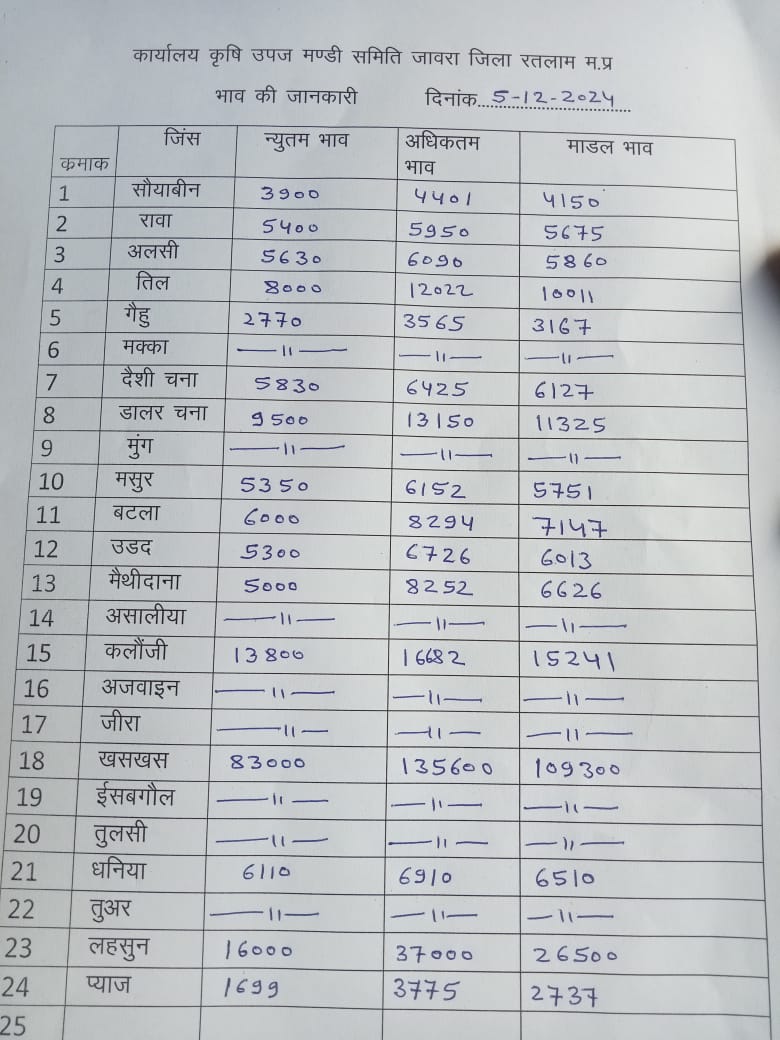 कार्यालय कृषि उपज मण्डी समिति जावरा जिला रतलाम म.प्र
भाव की जानकारी दिनांक...5-12-2024
कमाक जिंस न्युतम भाव अधिकतम भाव माडल भाव
1 सौयाबीन 3900 4401 4150
2 रावा 5400 5950 5675
3 अलसी 5630 6090 5860
4 तिल 8000 12022 10011
5 गैहु 2770 3565 3167
6 मक्का —11— —11— —11—
7 दैशी चना 5830 6425 6127
8 डालर चना 9500 13150 11325
9 मुंग —11— —11— —11—
10 मसुर 5350 6152 5751
11 बटला 6000 8294 7147
12 उडद 5300 6726 6013
13 मैथीदाना 5000 8252 6626
14 असालीया —11— —11— —11—
15 कलौंजी 13800 16682 15241
16 अजवाइन —11— —11— —11—
17 जीरा —11— —11— —11—
18 खसखस 83000 135600 109300
19 ईसबगौल —11— —11— —11—
20 तुलसी —11— —11— —11—
21 धनिया 6110 6910 6510
22 तुअर —11— —11— —11—
23 लहसुन 16000 37000 26500
24 प्याज 1699 3775 2737
25